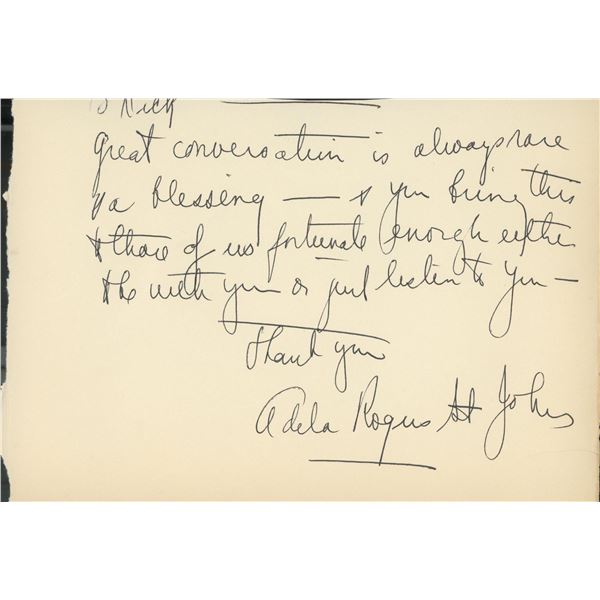 To Nick
great conversation is always rare
& a blessing — & you bring this
to those of us fortunate enough either
to be with you or just listen to you —
Thank you
Adela Rogers St Johns